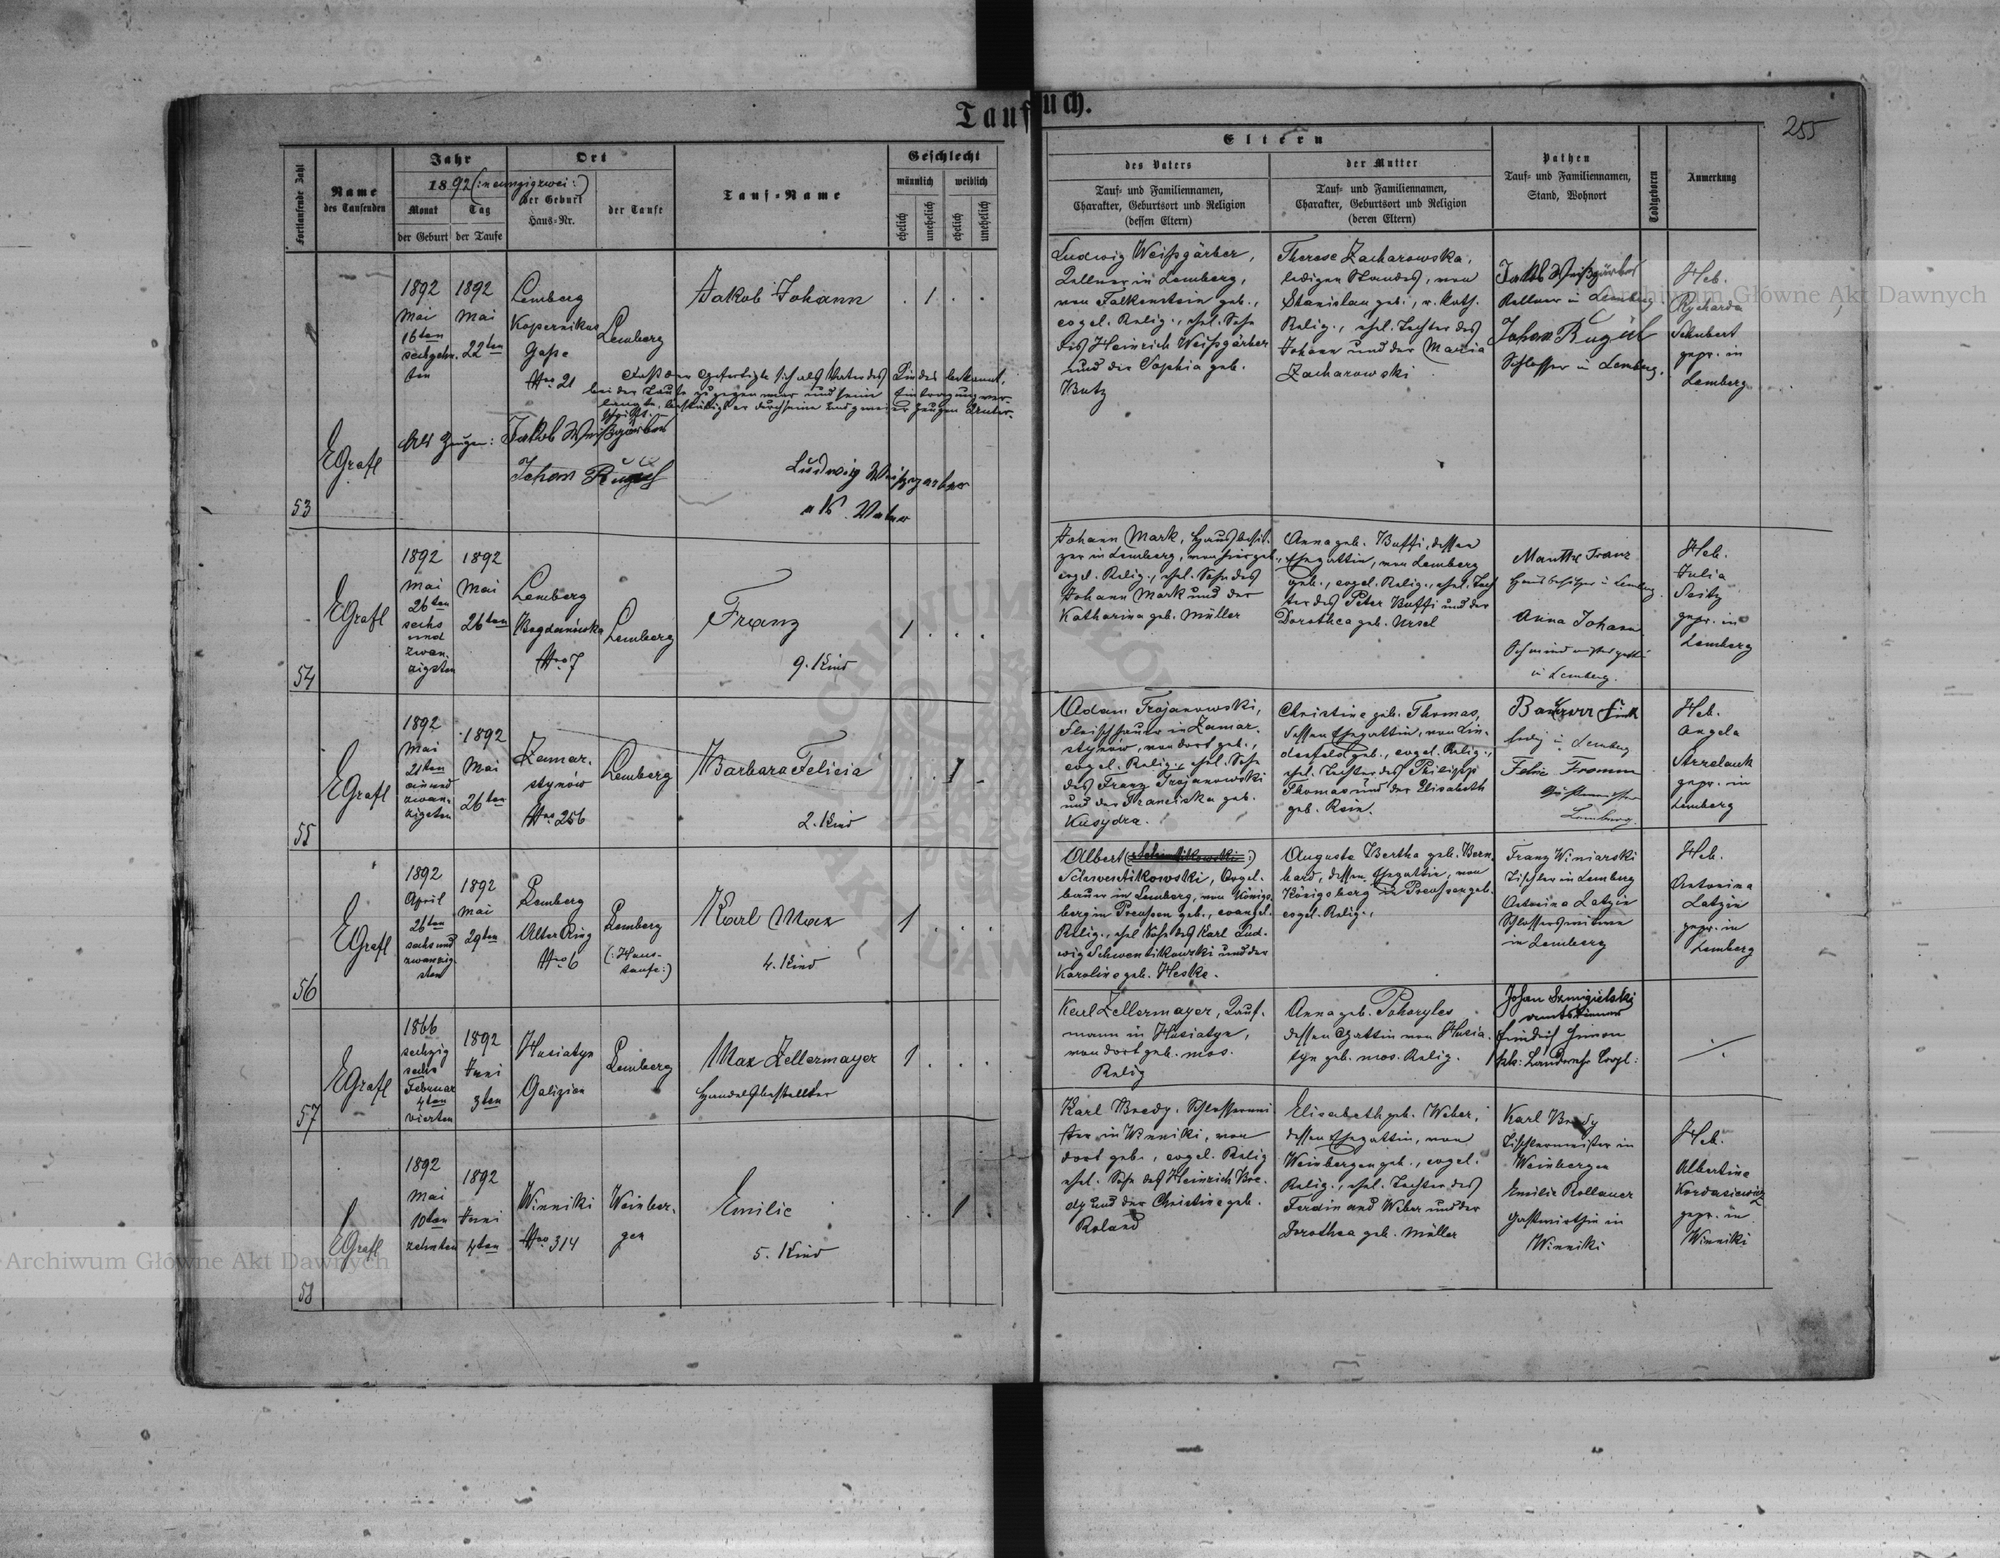 Taufbuch.
255
Fortlaufende Zahl
Name
des Taufenden
Jahr
1892 (: neunzigzwei :)
Monat
Tag
der Geburt
der Taufe
Ort
der Geburt
Haus-Nr.
der Taufe
Tauf-Name
Geschlecht
männlich
weiblich
ehelich
unehelich
ehelich
unehelich
Eltern
des Vaters
Tauf- und Familiennamen,
Charakter, Geburtsort und Religion
(dessen Eltern)
der Mutter
Tauf- und Familiennamen,
Charakter, Geburtsort und Religion
(deren Eltern)
Pathen
Tauf- und Familiennamen,
Stand, Wohnort
Todtgeboren
Anmerkung
53
EGrafl
1892
Mai
16ten
sechzehn-
ten
1892
Mai
22ten
Lemberg
Kopernikus
Gasse
Nro 21
Lemberg
Jakob Johann
1
Daß der Gefertigte sich als Vater des Kindes bekannt,
bei der Taufe zugegen war und seine Eintragung ver-
langte, bestätigt er durch seine und zweier Zeugen Unter-
schrift.
Als Zeugen:
Jakob Weißgärber
Johann
Ludwig Weißgärber
als Vater
Ludwig Weißgärber,
Kellner in Lemberg,
von Falkenstein geb.,
evgel. Relig., ehel. Sohn
des Heinrich Weißgärber
und der Sophia geb.
Butz
Therese Zacharowska,
ledigen Standes, von
Stanislau geb., r. kath.
Relig., ehel. Tochter des
Johann und der Maria
Zacharowski
Jakob Weißgärber
Kellner in Lemberg
Johann
Schlosser in Lemberg.
Heb.
Rycharda
Schubert
gepr. in
Lemberg
54
EGrafl
1892
Mai
26ten
sechs
und
zwan-
zigsten
1892
Mai
26ten
Lemberg
Bogdanówka
Nro 7
Lemberg
Franz
9. Kind
1
Johann Mark, Hausbesit-
zer in Lemberg, von hier geb.,
evgl. Relig., ehel. Sohn des
Johann Mark und der
Katharina geb. Müller
Anna geb. Buffi, dessen
Ehegattin, von Lemberg
geb., evgel. Relig., ehel. Toch
ter des Peter Buffi und der
Dorothea geb. Ursel
Franz
Hausbesitzer in Lemberg.
Anna Johann
in Lemberg.
Heb.
Julia
Saitz
gepr. in
Lemberg
55
EGrafl
1892
Mai
21ten
ein und
zwan-
zigsten
1892
Mai
26ten
Zamar-
stynów
Nro 256
Lemberg
Barbara Felicia
2. Kind
1
Adam Trojanowski,
Fleischhauer in Zamar-
stynów, von dort geb.,
evgel. Relig., ehel. Sohn
des Franz Trojanowski
und der Franciska geb.
Kusydra.
Christine geb. Thomas,
dessen Ehegattin, von Lin-
denfeld geb., evgel. Relig.,
ehel. Tochter des Philipp
Thomas und der Elisabeth
geb. Rein.
ledig in Lemberg
Felix Fromm
Lemberg.
Heb.
Angela
Strzelauk
gepr. in
Lemberg
56
EGrafl
1892
April
26ten
sechs und
zwanzig-
sten
1892
Mai
29ten
Lemberg
Alter Ring
Nro 6
Lemberg
(: Haus-
taufe :)
Karl Max
4. Kind
1
Albert
Schwentikowski, Orgel-
bauer in Lemberg, von Königs-
berg in Preussen geb., evangel.
Relig., ehel. Sohn des Karl Lud-
wig Schwentikowski und der
Karoline geb. Heske.
Auguste Bertha geb. Bern-
hard, dessen Ehegattin, von
Königsberg in Preussen geb.
evgel. Relig.,
Franz Winiarski
Tischler in Lemberg
Antonina Latzin
Schlosserswitwe
in Lemberg
Heb.
Antonina
Latzin
gepr. in
Lemberg
57
EGrafl
1866
sechzig
sechs
Februar
4ten
vierten
1892
Juni
3ten
Husiatyn
Galizien
Lemberg
Max Zellermayer
Handelsbestellter
1
Karl Zellermayer, Kauf-
mann in Husiatyn,
von dort geb. mos.
Relig
Anna geb. Pohoryles
dessen Gattin von Husia-
tyn geb. mos. Relig.
Johan Szmigielski
Amtsdiener
58
EGrafl
1892
Mai
10ten
zehnten
1892
Juni
4ten
Winniki
Nro 314
Weinber-
gen
Emilie
5. Kind
1
Karl Bredy, Schlossermei-
ster in Winniki, von
dort geb., evgel. Relig
ehel. Sohn des Heinrich Bre-
dy und der Christine geb.
Roland
Elisabeth geb. Weber,
dessen Ehegattin, von
Weinbergen geb., evgel.
Relig., ehel. Tochter des
Ferdinand Weber und der
Dorothea geb. Müller
Karl Bredy
Tischlermeister in
Weinbergen
Emilie Rollauer
Gastwirthin in
Winniki
Heb.
Albertine
Kordasiewicz
gepr. in
Winniki
Archiwum Główne Akt Dawnych
Archiwum Główne Akt Dawnych